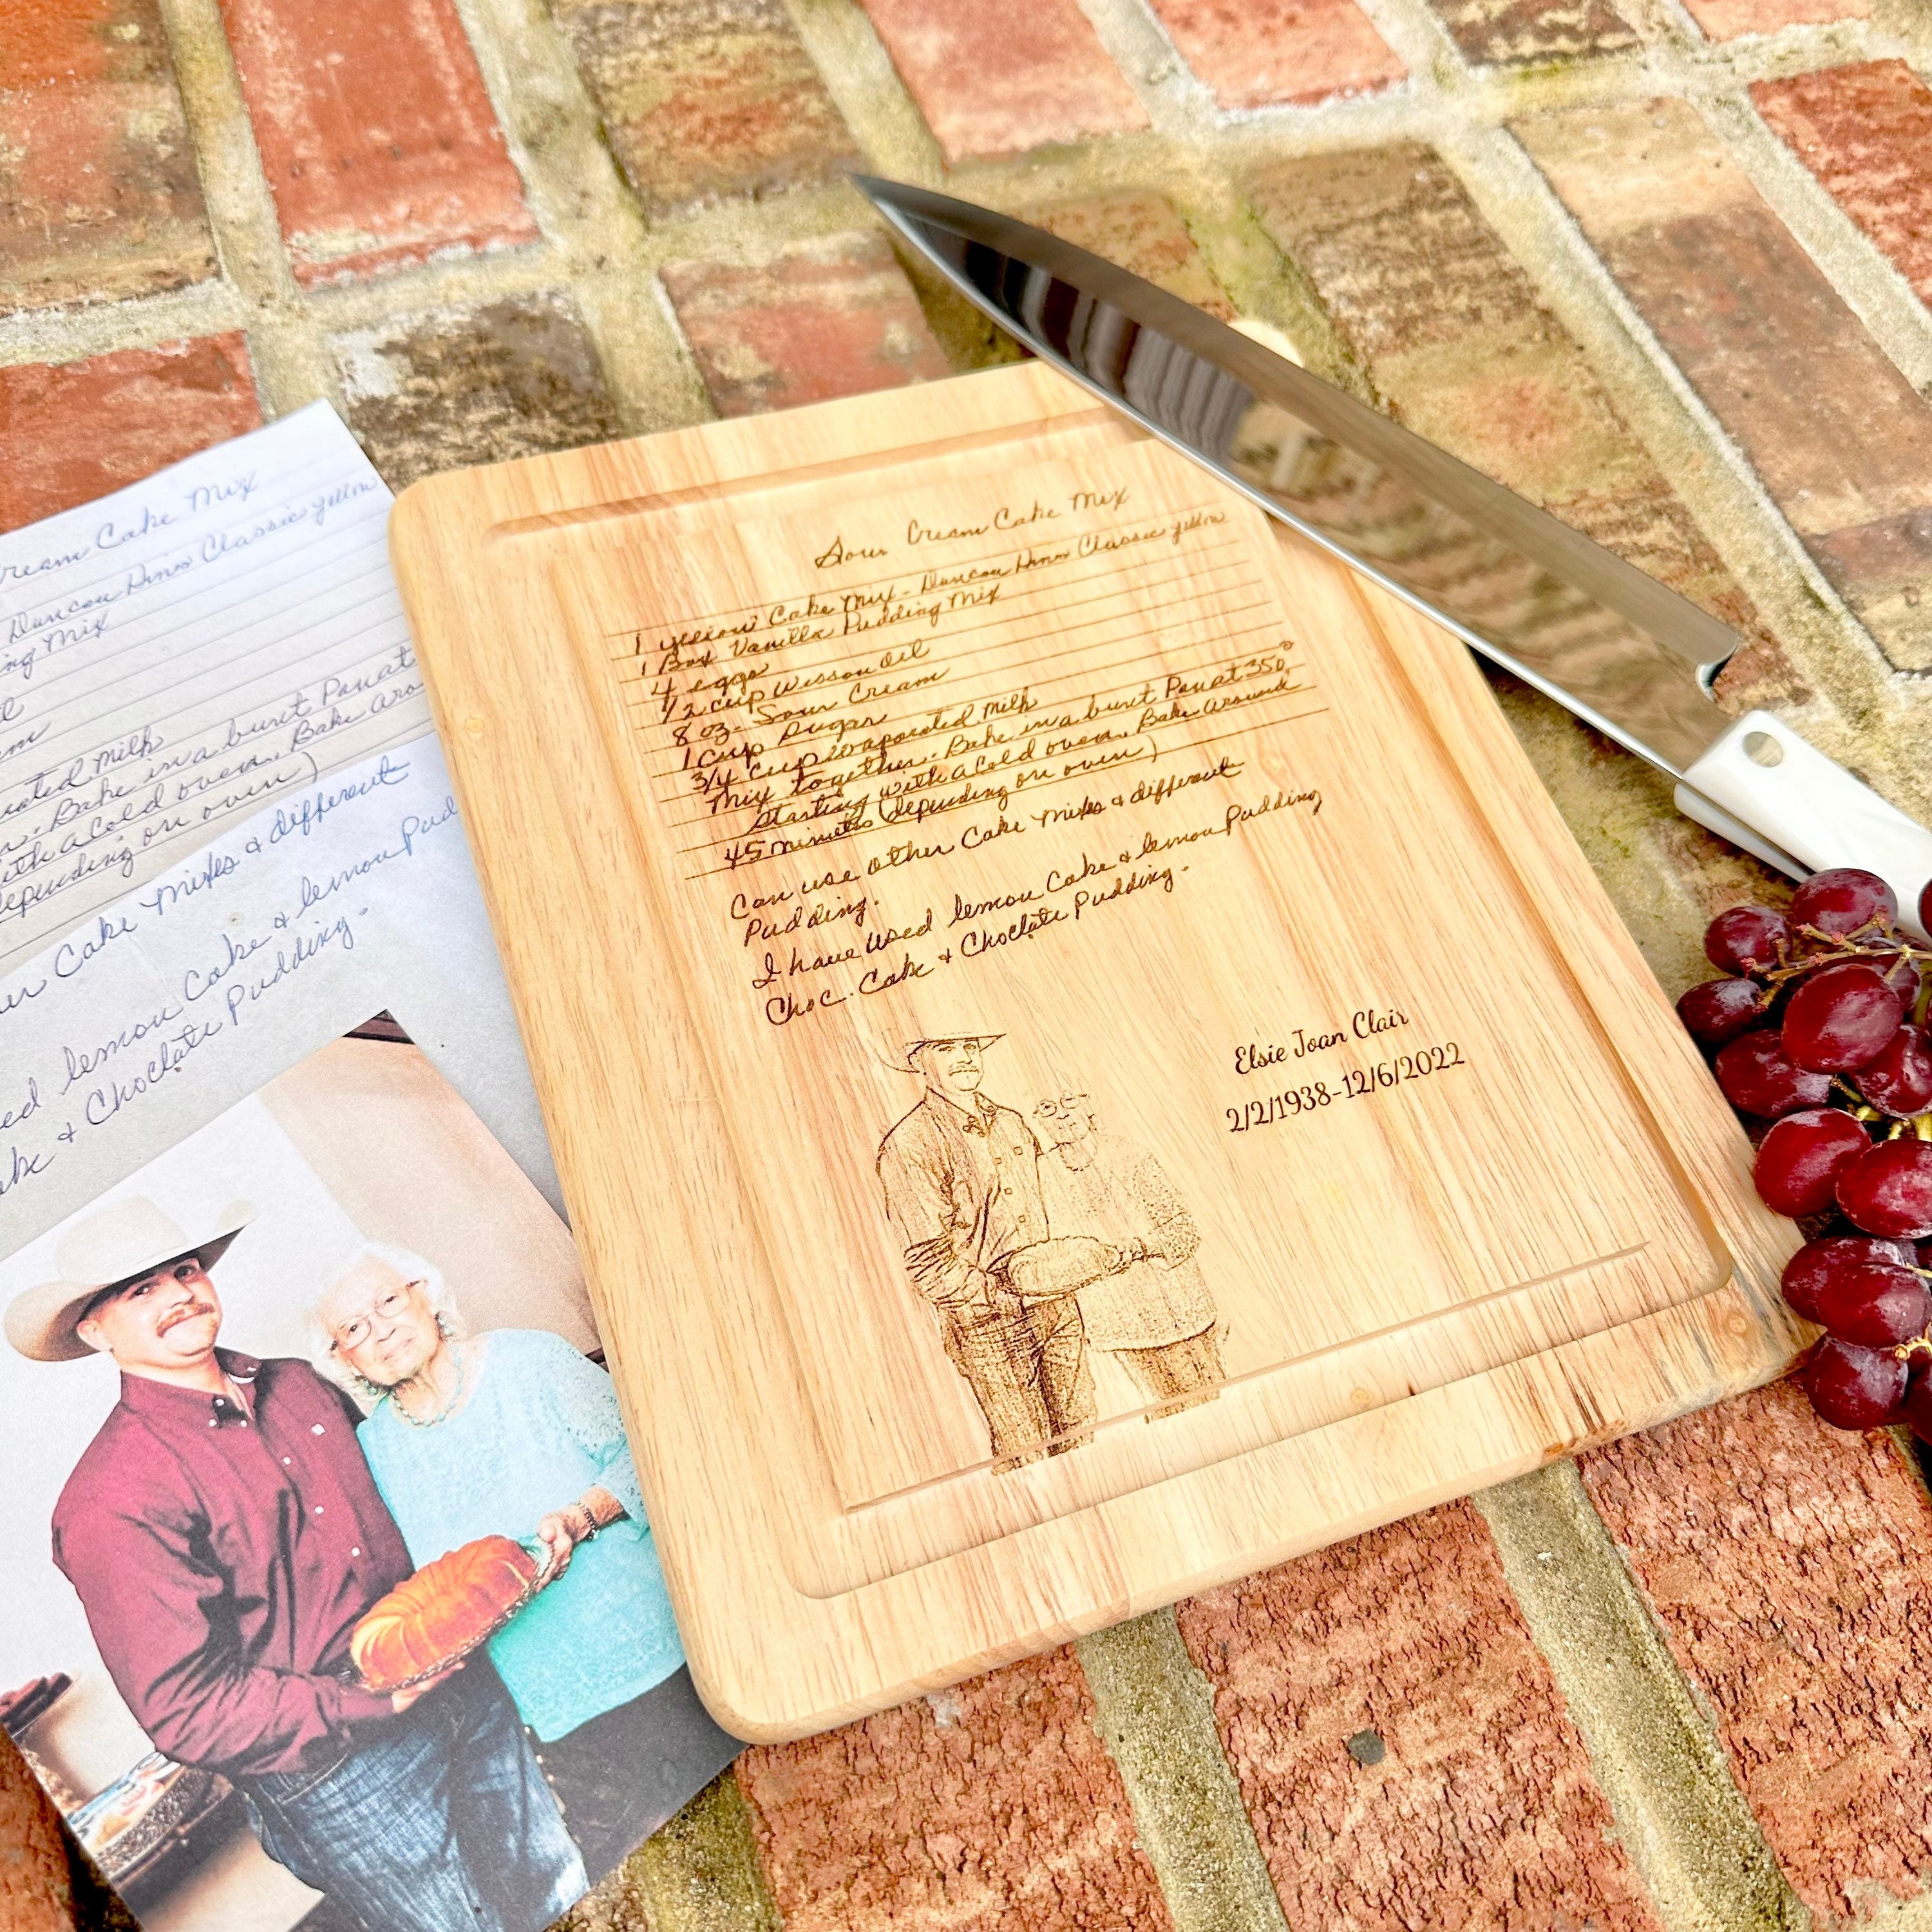 Sour Cream Cake Mix
1 yellow Cake Mix - Duncan Hines Classic yellow
1 Box Vanilla Pudding Mix
4 eggs
1/2 cup Wesson Oil
8 oz - Sour Cream
1 Cup Sugar
3/4 cup Evaporated Milk
Mix together. Bake in a bunt Pan at 350°
Starting with a Cold oven. Bake around
45 minutes (depending on oven)
Can use other Cake Mixes & different
Pudding.
I have used lemon Cake & lemon Pudding
Choc. Cake & Choclate Pudding.
Elsie Joan Clair
2/2/1938-12/6/2022
ream Cake Mix
Duncan Hines Classic yellow
ng Mix
l
m
rated Milk
. Bake in a bunt Pan at
ith a Cold oven. Bake aro
epending on oven)
er Cake Mixes & different
ed lemon Cake & lemon Pud
ake & Choclate Pudding.